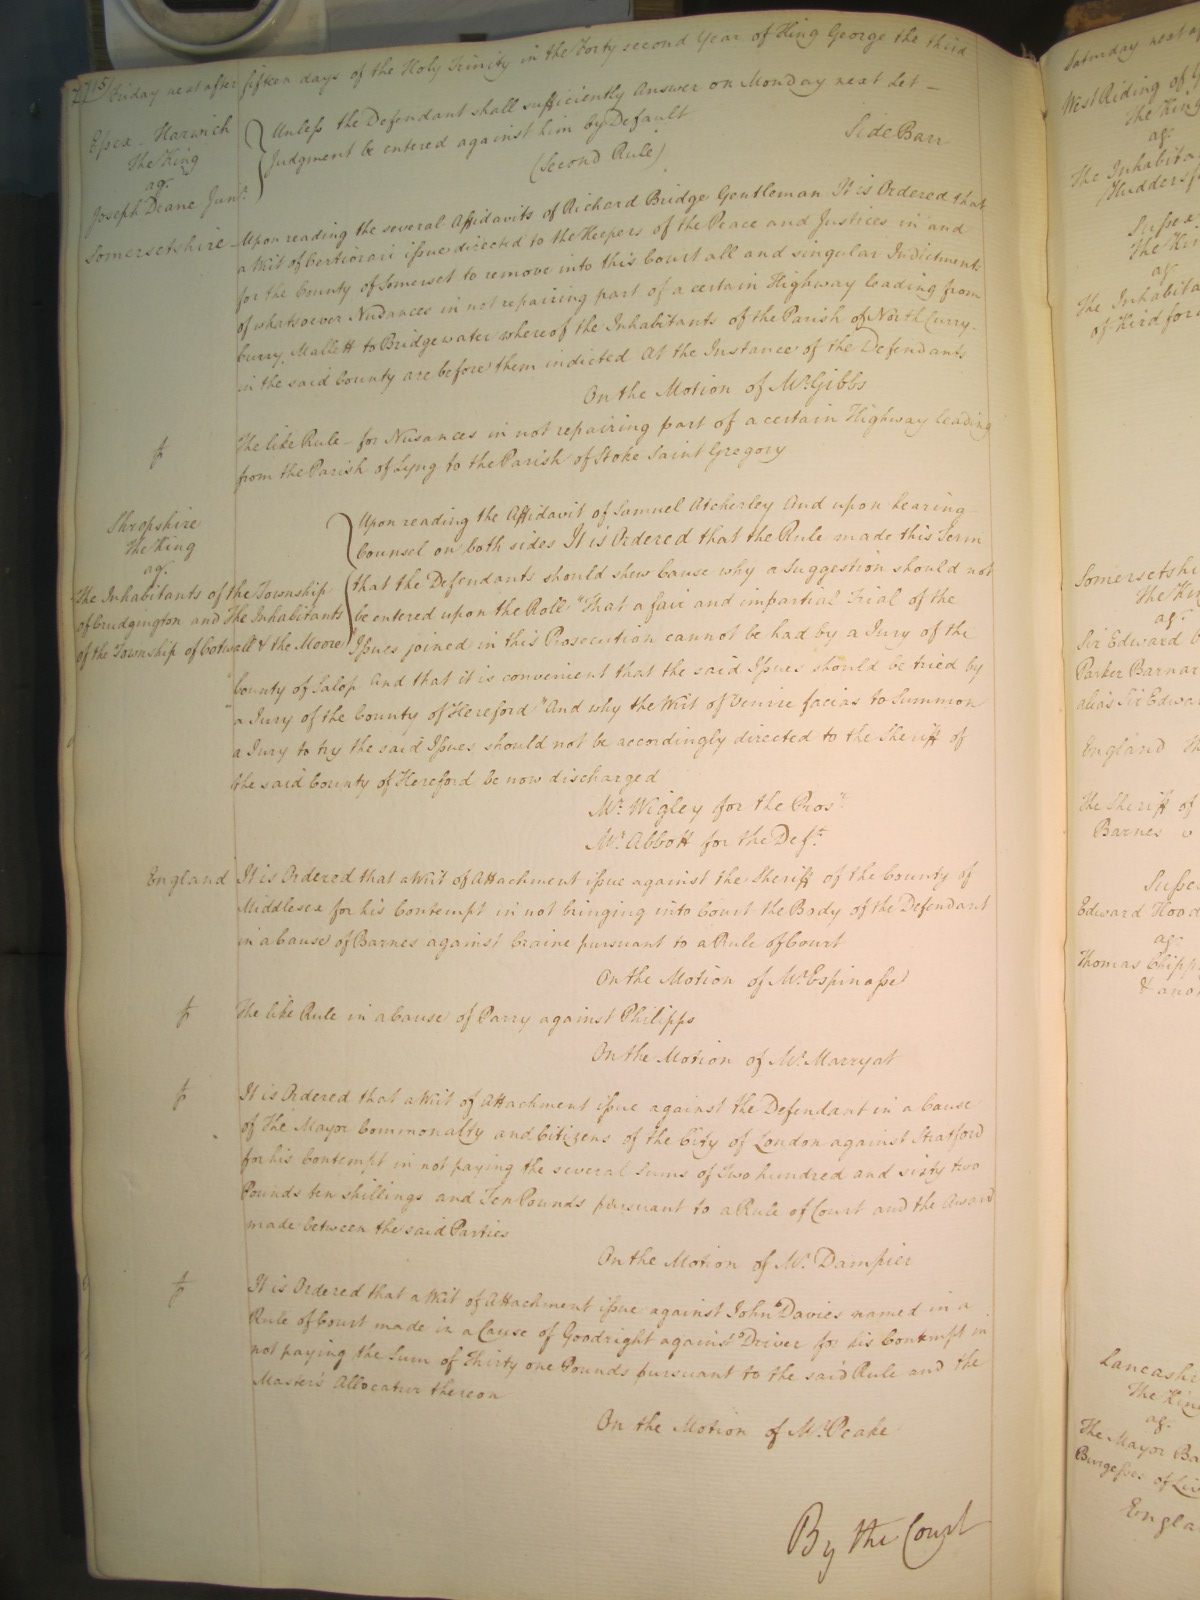 Friday next after fifteen days of the Holy Trinity in the Forty second Year of King George the third
Essex. Harwich
The King
agt.
Joseph Deane Junr.
Unless the Defendant shall sufficiently Answer on Monday next let
Judgment be entered against him by Default
Side Barr
(Second Rule)
Somersetshire
Upon reading the several Affidavits of Richard Bridge Gentleman It is Ordered that
a Writ of Certiorari issue directed to the Keepers of the Peace and Justices in and
for the County of Somerset to remove into this Court all and singular Indictments
of whatsoever Nusances in not repairing part of a certain Highway leading from
Curry Mallett to Bridgewater whereof the Inhabitants of the Parish of North Curry
in the said County are before them indicted At the Instance of the Defendants
On the Motion of Mr. Gibbs
The like Rule – for Nusances in not repairing part of a certain Highway leading
from the Parish of Lyng to the Parish of Stoke Saint Gregory
Shropshire
The King
agt.
The Inhabitants of the Township
of Crudgington and The Inhabitants
of the Township of Cotwall & the Moore
Upon reading the Affidavit of Samuel Atcherley And upon hearing
Counsel on both sides It is Ordered that the Rule made this Term
that the Defendants should shew Cause why a Suggestion should not
be entered upon the Roll "That a fair and impartial Trial of the
Issues joined in this Prosecution cannot be had by a Jury of the
"County of Salop And that it is convenient that the said Issues should be tried by
"a Jury of the County of Hereford" And why the Writ of Venire facias to Summon
a Jury to try the said Issues should not be accordingly directed to the Sheriff of
the said County of Hereford be now discharged
Mr. Wigley for the Prosr.
Mr. Abbott for the Deft.
England
It is Ordered that a Writ of Attachment issue against the Sheriff of the County of
Middlesex for his Contempt in not bringing into Court the Body of the Defendant
in a Cause of Barnes against Craine pursuant to a Rule of Court
On the Motion of Mr. Espinasse
The like Rule in a Cause of Parry against Philipps
On the Motion of Mr. Marryat
It is Ordered that a Writ of Attachment issue against the Defendant in a Cause
of The Mayor Commonalty and Citizens of the City of London against Stratford
for his Contempt in not paying the several Sums of Two hundred and sixty two
Pounds ten shillings and Ten Pounds pursuant to a Rule of Court and the Award
made between the said Parties
On the Motion of Mr. Dampier
It is Ordered that a Writ of Attachment issue against John Davies named in a
Rule of Court made in a Cause of Goodright against Driver for his Contempt in
not paying the Sum of Thirty one Pounds pursuant to the said Rule and the
Master's Allocatur thereon
On the Motion of Mr. Peake
By the Court
Saturday next
West Riding of
The King
agt.
The
Sussex
The
agt.
The
of Kirdford
The King
agt.
Sir Edward
Parker Barnar
alias Sir Edwar
England
The Sheriff of
Barnes v
Edward Hood
agt.
Thomas Chipp
& anor
Lancashi
The King
agt.
The Mayor Ba
Burgesses of Liv
Engla